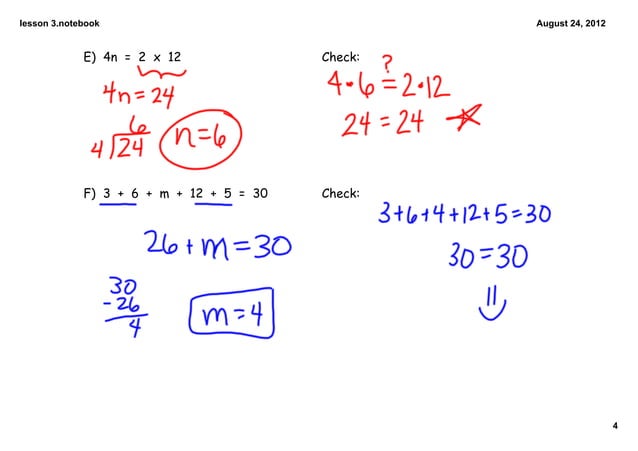 lesson 3.notebook
August 24, 2012
E) 4n = 2 x 12
4n = 24
6
4 24
n = 6
Check:
?
4 • 6 = 2 • 12
24 = 24
F) 3 + 6 + m + 12 + 5 = 30
26 + m = 30
30
- 26
4
m = 4
Check:
3+6+4+12+5=30
30 = 30
4